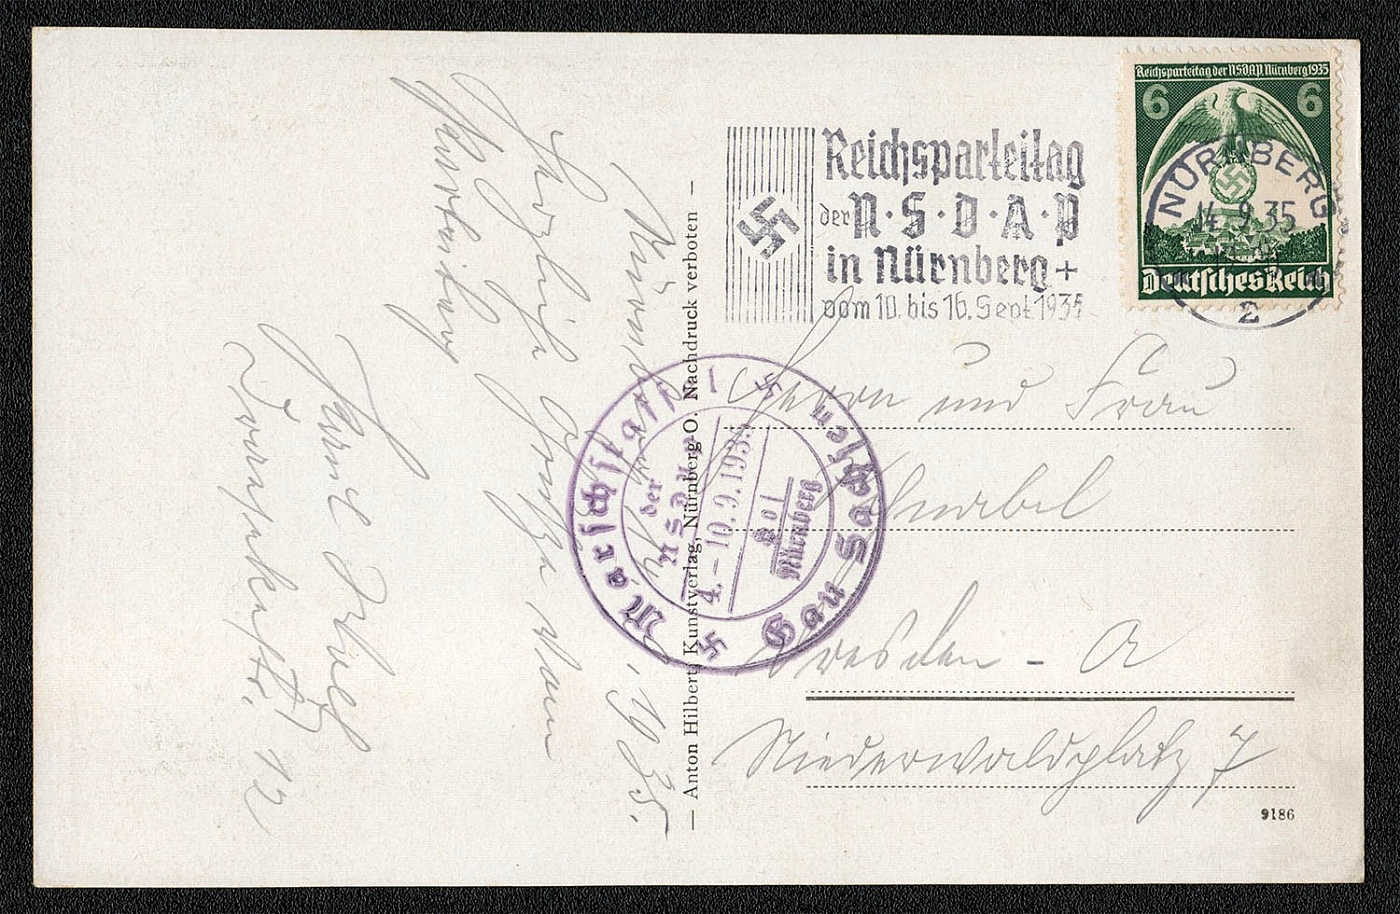 Reichsparteitag der NSDAP. Nürnberg 1935
6 6
Deutsches Reich
NÜRNBERG
14.9.35
2
Reichsparteitag
der N·S·D·A·P
in Nürnberg +
vom 10. bis 16. Sept 1935
Marschstaffel Gau Sachsen
der
NSDAP
4.–10.9.193
Pol
Nürnberg
Herrn und Frau
Dresden - A
Niederwaldplatz 7
9186
— Anton Hilbert, Kunstverlag, Nürnberg-O. Nachdruck verboten —
1935.
Herzliche Grüße vom
Parteitag
12